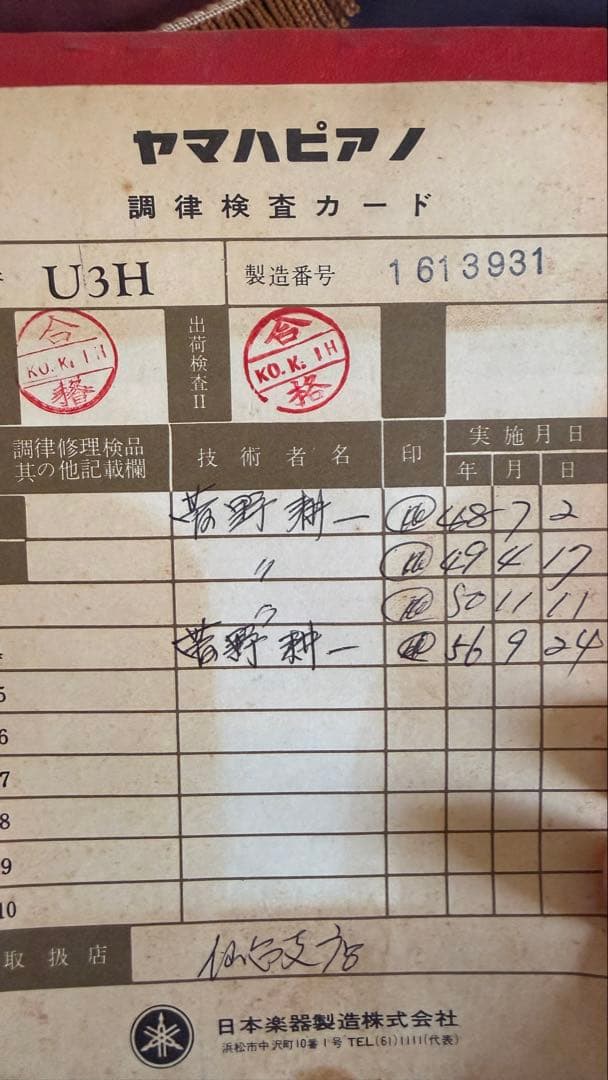 ヤマハピアノ
調律検査カード
U3H 製造番号 1613931
合 KO.K. I H 格 出荷検査II 合 KO.K. I H 格
調律修理検品 其の他記載欄 技術者名 印 実施月日
年 月 日
菅野耕一 48 7 2
〃 49 4 17
〃 50 11 11
菅野耕一 56 9 24
5
6
7
8
9
10
取扱店 仙台支店
日本楽器製造株式会社
浜松市中沢町10番1号 TEL(61)1111(代表)